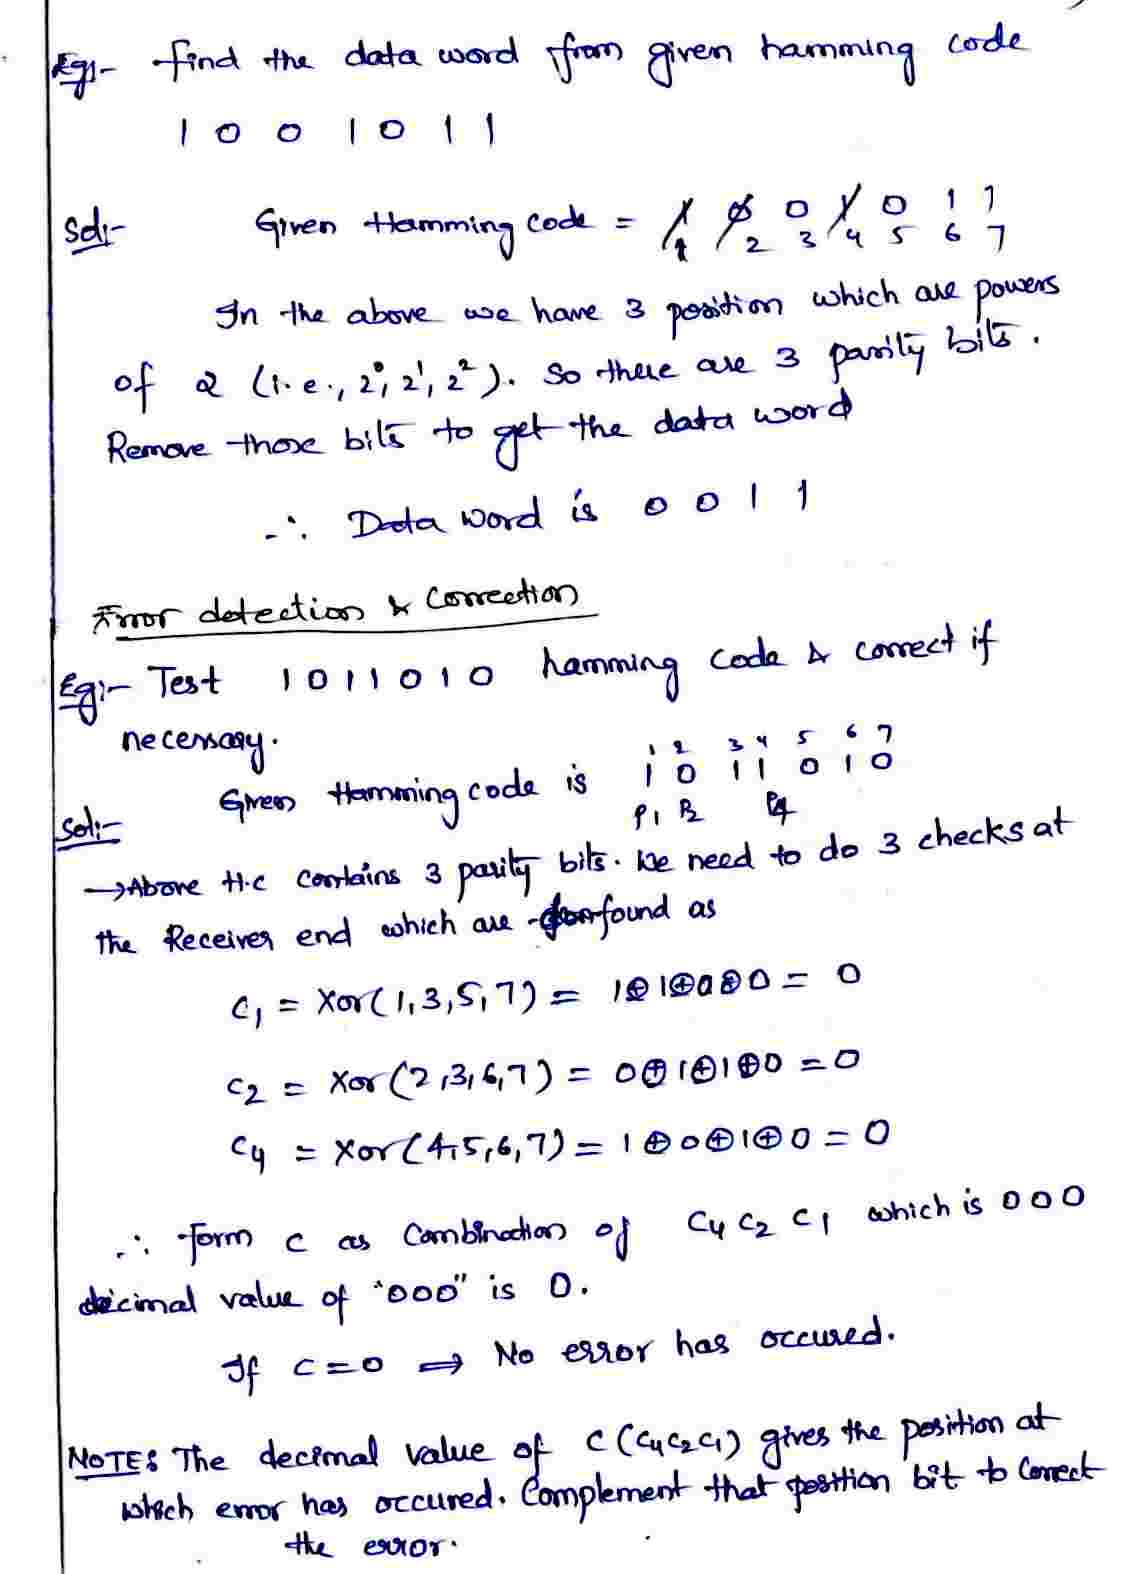 Eg:- find the data word from given hamming code
1 0 0 1 0 1 1
Sol:- Given Hamming code = 1 0 0 1 0 1 1
1 2 3 4 5 6 7
In the above we have 3 position which are powers
of 2 (i.e., 2⁰, 2¹, 2²). So there are 3 parity bits.
Remove those bits to get the data word
∴ Data word is 0 0 1 1
Error detection & Correction
Eg:- Test 1 0 1 1 0 1 0 hamming code & correct if
necessary.
1 2 3 4 5 6 7
Sol:- Given Hamming code is 1 0 1 1 0 1 0
P1 P2 P4
→ Above H.C contains 3 parity bits. We need to do 3 checks at
the Receiver end which are found as
C1 = Xor(1,3,5,7) = 1⊕1⊕0⊕0 = 0
C2 = Xor(2,3,6,7) = 0⊕1⊕1⊕0 = 0
C4 = Xor(4,5,6,7) = 1⊕0⊕1⊕0 = 0
∴ form C as Combination of C4 C2 C1 which is 0 0 0
decimal value of "000" is 0.
If C = 0 ⇒ No error has occured.
NOTE: The decimal value of C (C4C2C1) gives the position at
which error has occured. Complement that position bit to Correct
the error.